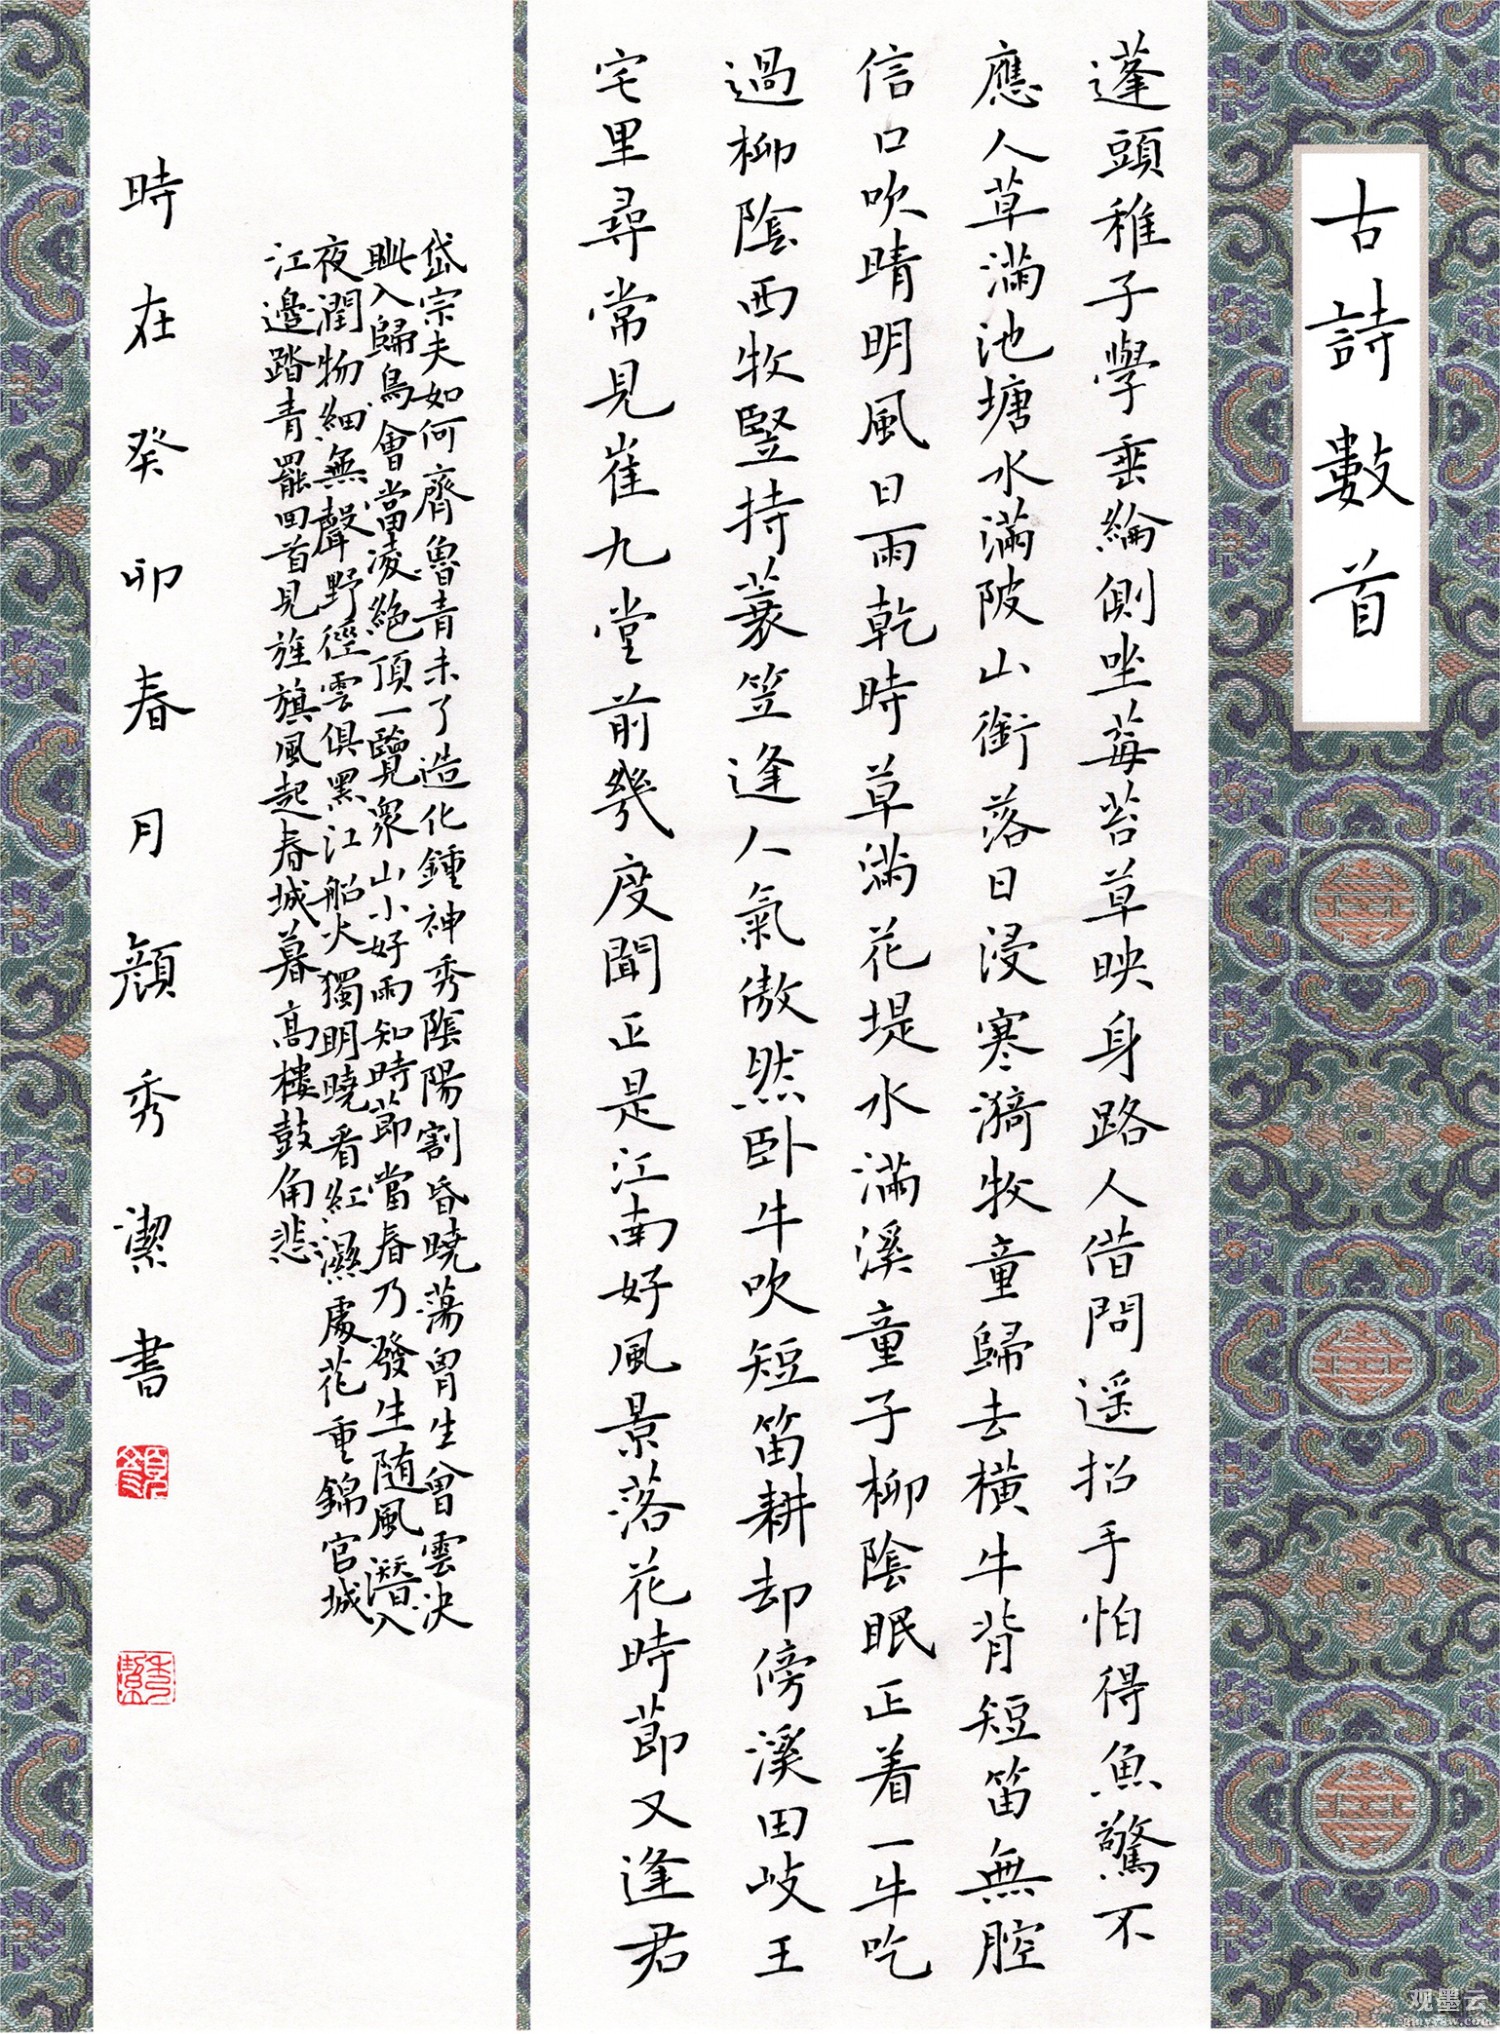 古詩數首
蓬頭稚子學垂綸側坐莓苔草映身路人借問遥招手怕得魚驚不
應人草滿池塘水滿陂山銜落日浸寒漪牧童歸去橫牛背短笛無腔
信口吹晴明風日雨乾時草滿花堤水滿溪童子柳陰眠正着一牛吃
過柳陰西牧豎持蓑笠逢人氣傲然卧牛吹短笛耕却傍溪田岐王
宅里尋常見崔九堂前幾度聞正是江南好風景落花時節又逢君
岱宗夫如何齊魯青未了造化鍾神秀陰陽割昏曉蕩胷生曾雲决
眦入歸鳥會當凌絕頂一覽衆山小好雨知時節當春乃發生随風潛入
夜潤物細無聲野徑雲俱黑江船火獨明曉看紅濕處花重錦官城
江邊踏青罷回首見旌旗風起春城暮高樓鼓角悲
時在癸卯春月顔秀潔書
观墨云